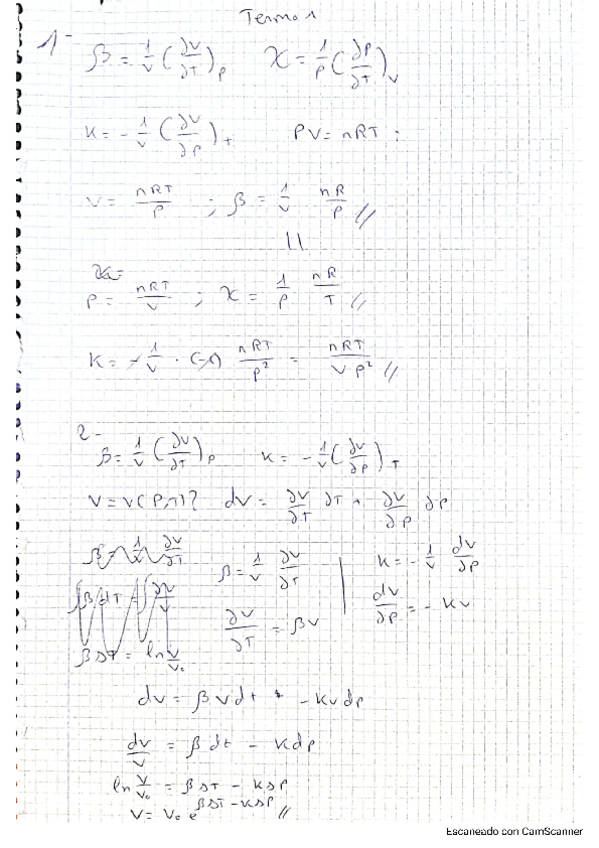 Termo 1
1- β = 1/V (∂V/∂T)_P   χ = 1/P (∂P/∂T)_V
K = - 1/V (∂V/∂P)_T   PV = nRT :
V = nRT/P ; β = 1/V nR/P //
P = nRT/V ; χ = 1/P nR/T //
K = - 1/V · (-1) nRT/P² = nRT/VP² //
2-
β = 1/V (∂V/∂T)_P   K = - 1/V (∂V/∂P)_T
V = V(P,T)?   dV = ∂V/∂T ∂T + ∂V/∂P ∂P
β = 1/V ∂V/∂T
β = 1/V ∂V/∂T | K = - 1/V dV/∂P
∫β dT = ∫∂V/V
∂V/∂T = βV | dV/∂P = - KV
βΔT = ln V/V₀
dV = βVdt + -KVdP
dV/V = βdt - KdP
ln V/V₀ = βΔT - KΔP
V = V₀ e^(βΔT - KΔP) //
Escaneado con CamScanner